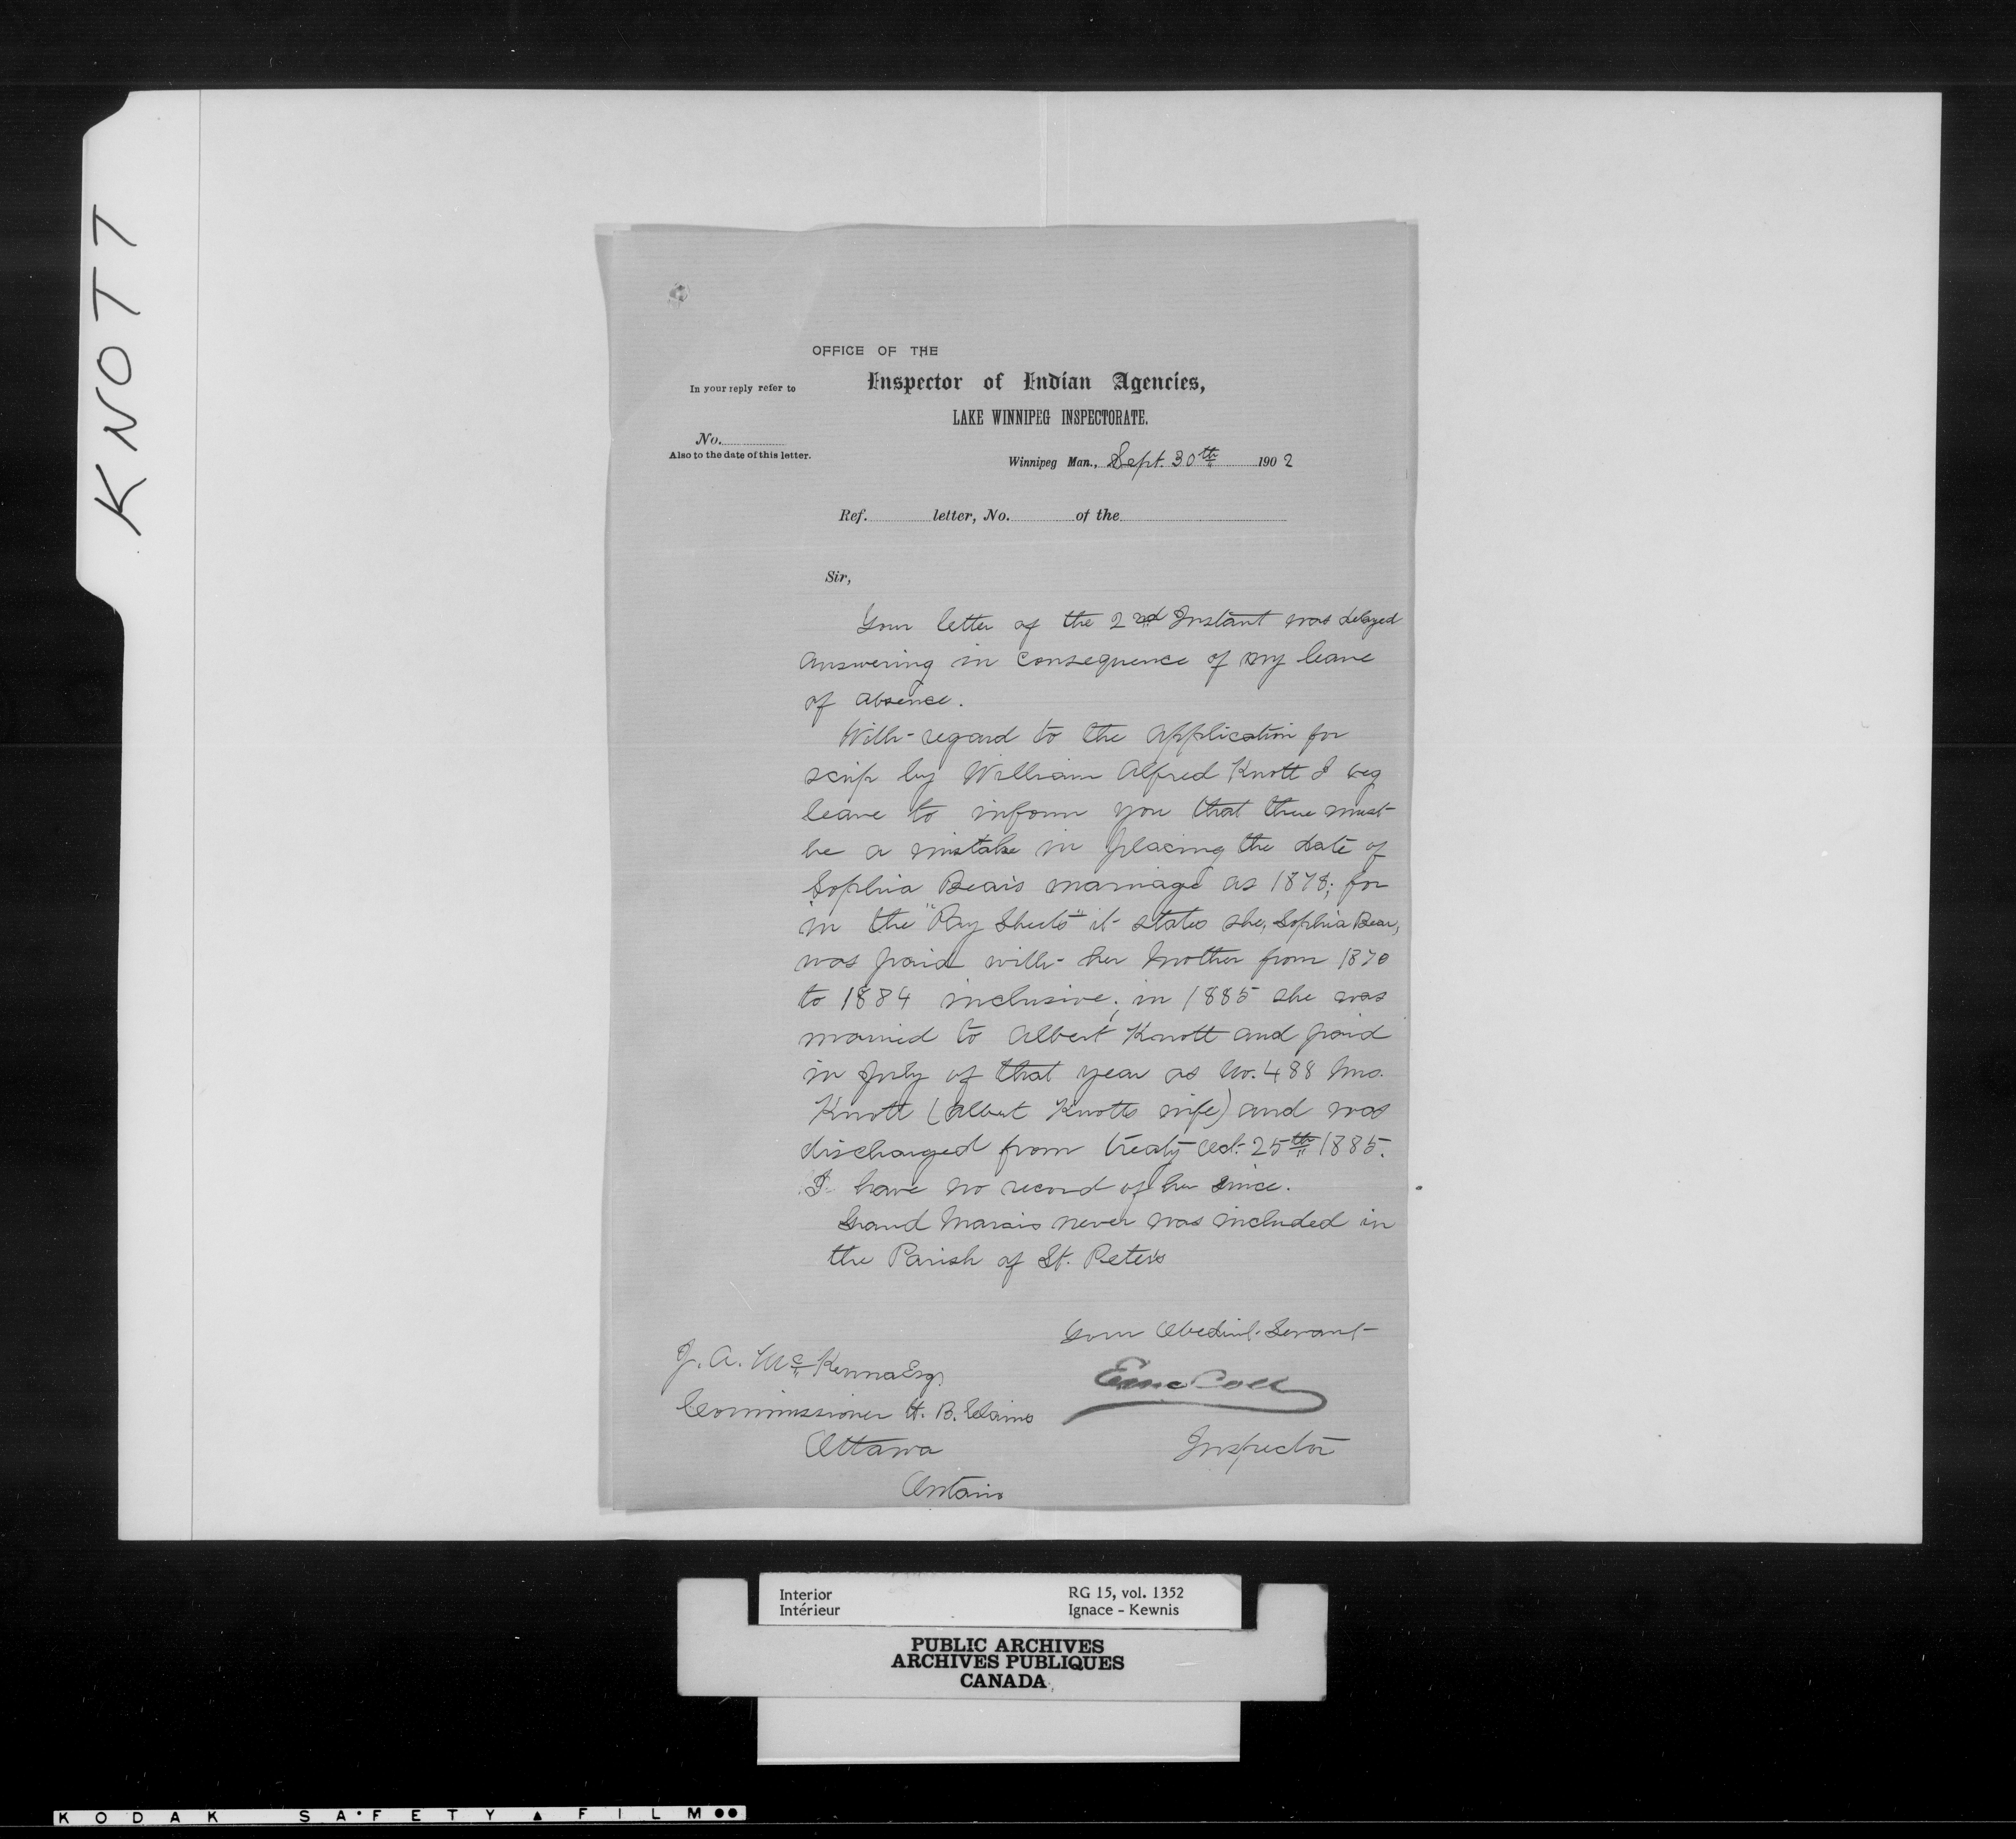 KNOTT
OFFICE OF THE
In your reply refer to
Inspector of Indian Agencies,
LAKE WINNIPEG INSPECTORATE.
No.
Also to the date of this letter.
Winnipeg Man., Sept. 30th 1902
Ref. letter, No. of the
Sir,
Your letter of the 2nd Instant was delayed
answering in consequence of my leave
of absence.
With regard to the application for
scrip by William Alfred Knott I beg
leave to inform you that there must
be a mistake in placing the date of
Sophia Bears marriage as 1878; for
in the "Pay Sheets" it states she, Sophia Bear,
was paid with her Mother from 1870
to 1884 inclusive; in 1885 she was
married to Albert Knott and paid
in July of that year as No. 488 Mrs.
Knott (Albert Knotts wife) and was
discharged from treaty Oct. 25th 1885.
I have no record of her since.
Grand Marais never was included in
the Parish of St. Peter's
Your Obedient Servant
J. A. McKenna Esq.
Commissioner H. B. Claims
Inspector
Ottawa
Ontario
Interior
Intérieur
RG 15, vol. 1352
Ignace - Kewnis
PUBLIC ARCHIVES
ARCHIVES PUBLIQUES
CANADA
KODAK SAFETY FILM